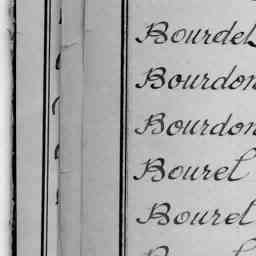 Bourdel
Bourdon
Bourdon
Bourel
Bourel